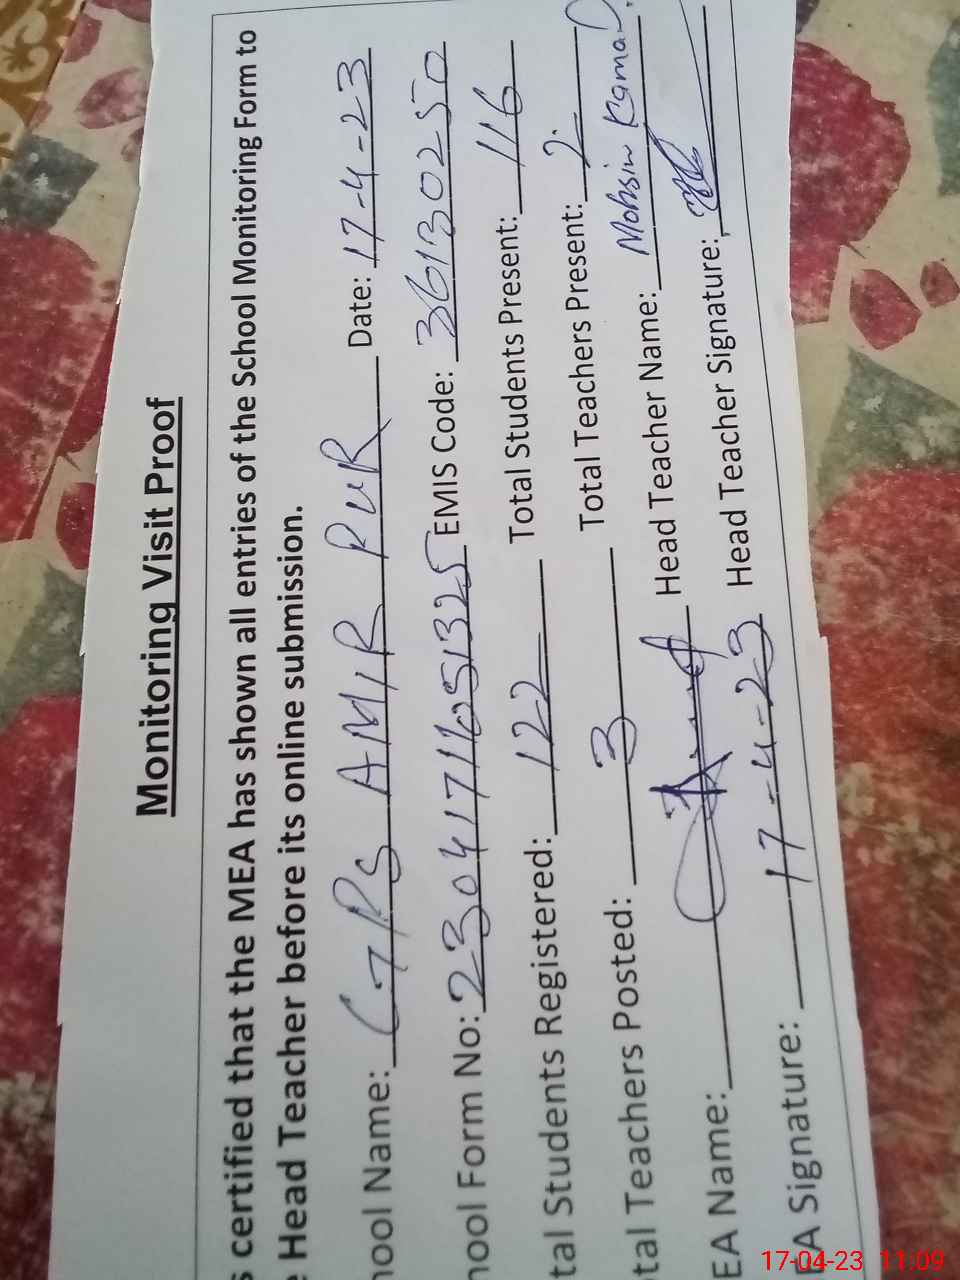 Monitoring Visit Proof
s certified that the MEA has shown all entries of the School Monitoring Form to
e Head Teacher before its online submission.
hool Name: GPS AMIR PUR Date: 17-4-23
hool Form No: EMIS Code: 36130250
tal Students Registered: 122 Total Students Present: 116
tal Teachers Posted: 3 Total Teachers Present: 2
EA Name: Head Teacher Name: Mohsin Kamal
EA Signature: 17-4-23 Head Teacher Signature:
17-04-23 11:09